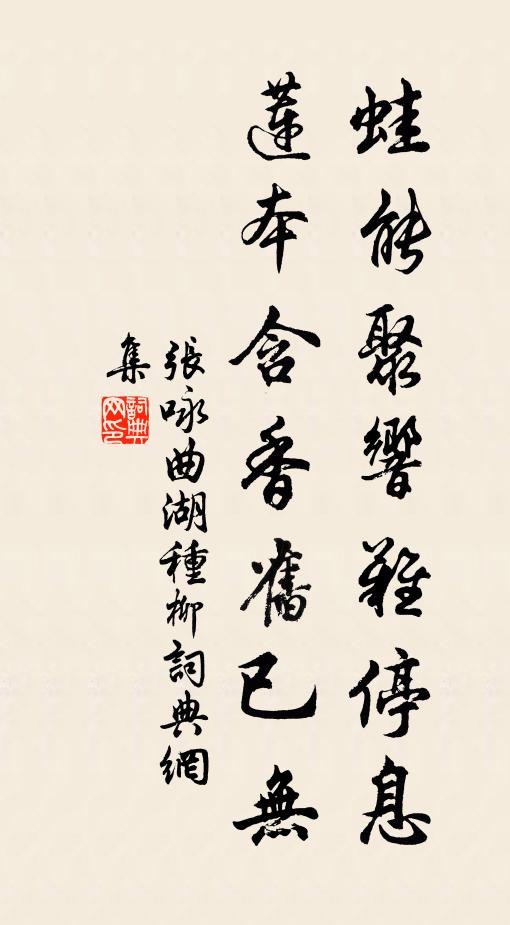 蛙能聚響難停息
蓮本含香舊已無
張咏曲湖種柳詞典網
集
詞典
网印